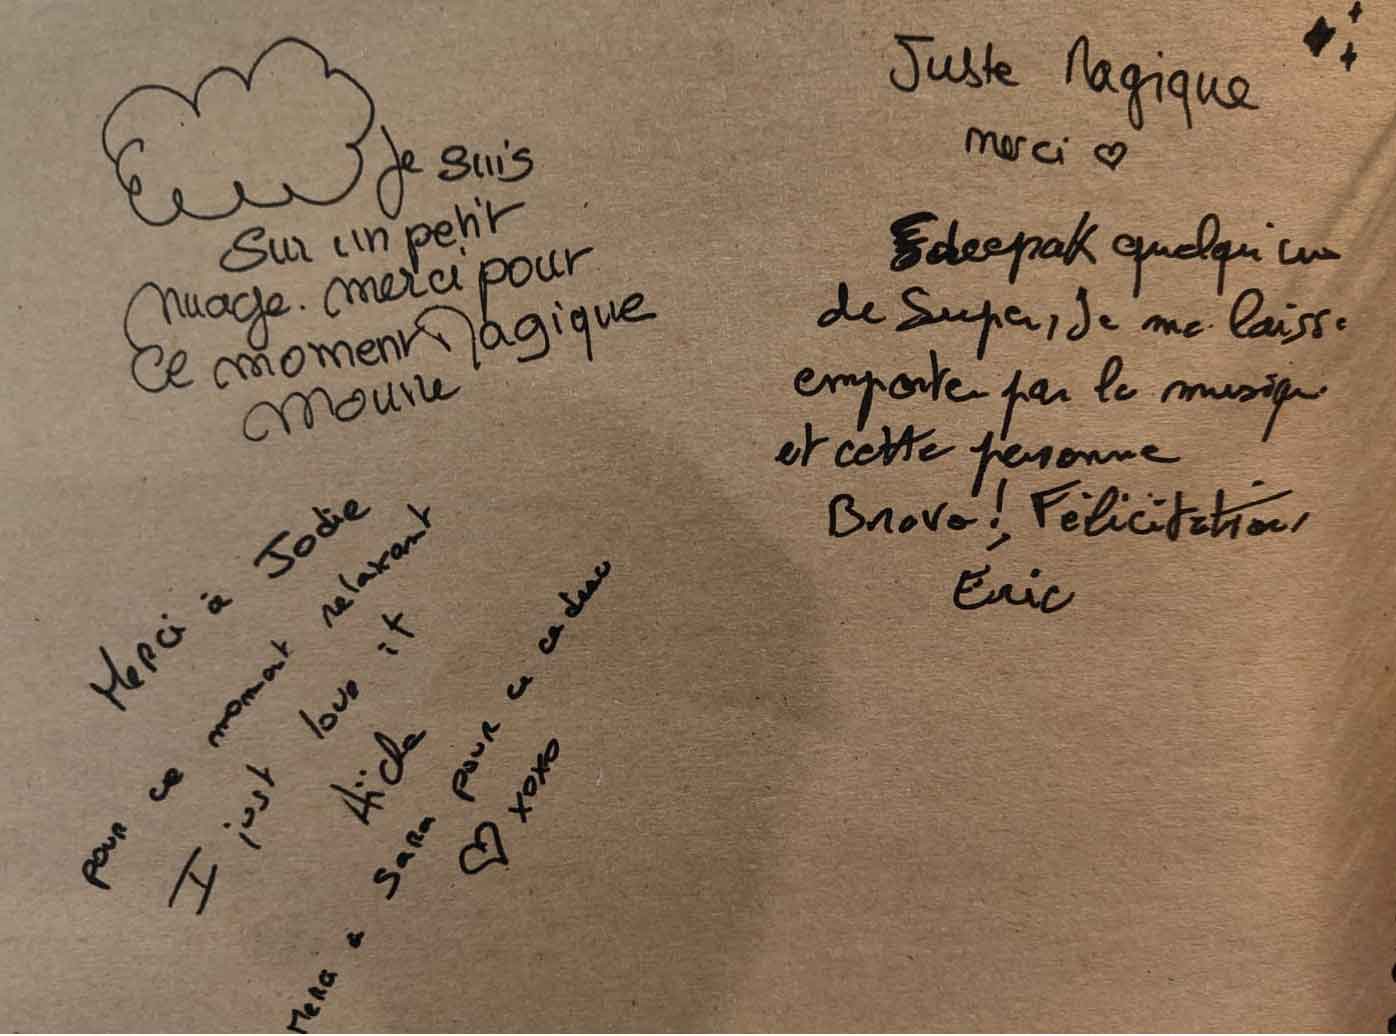 Je suis
sur un petit
nuage. merci pour
ce moment Magique
Juste Magique
merci ♡
deepak quelqu'un
de Super, Je me laisse
emporter par la musique
et cette personne
Bravo! Félicitation
Éric
Merci à Jodie
pour ce moment relaxant
I just love it
Aïcha
Merci a Sara pour ce cadeau
♡ xoxo